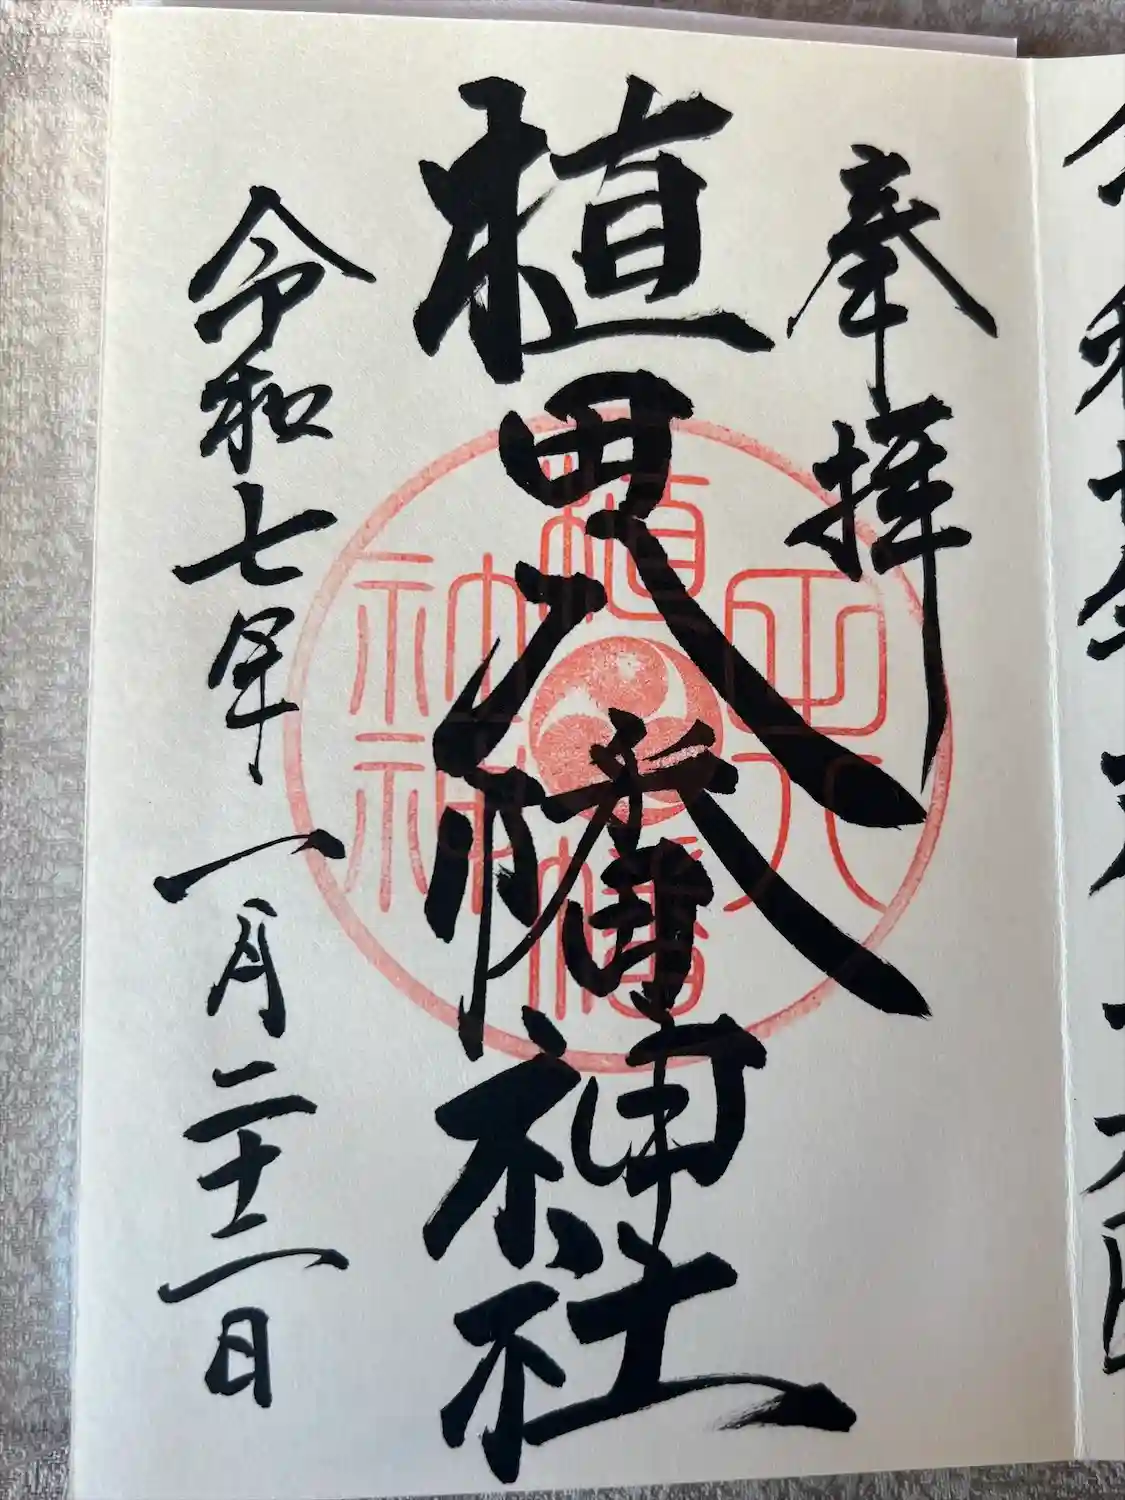 奉拝
植田八幡神社
令和七年一月二十二日
植田八幡神社